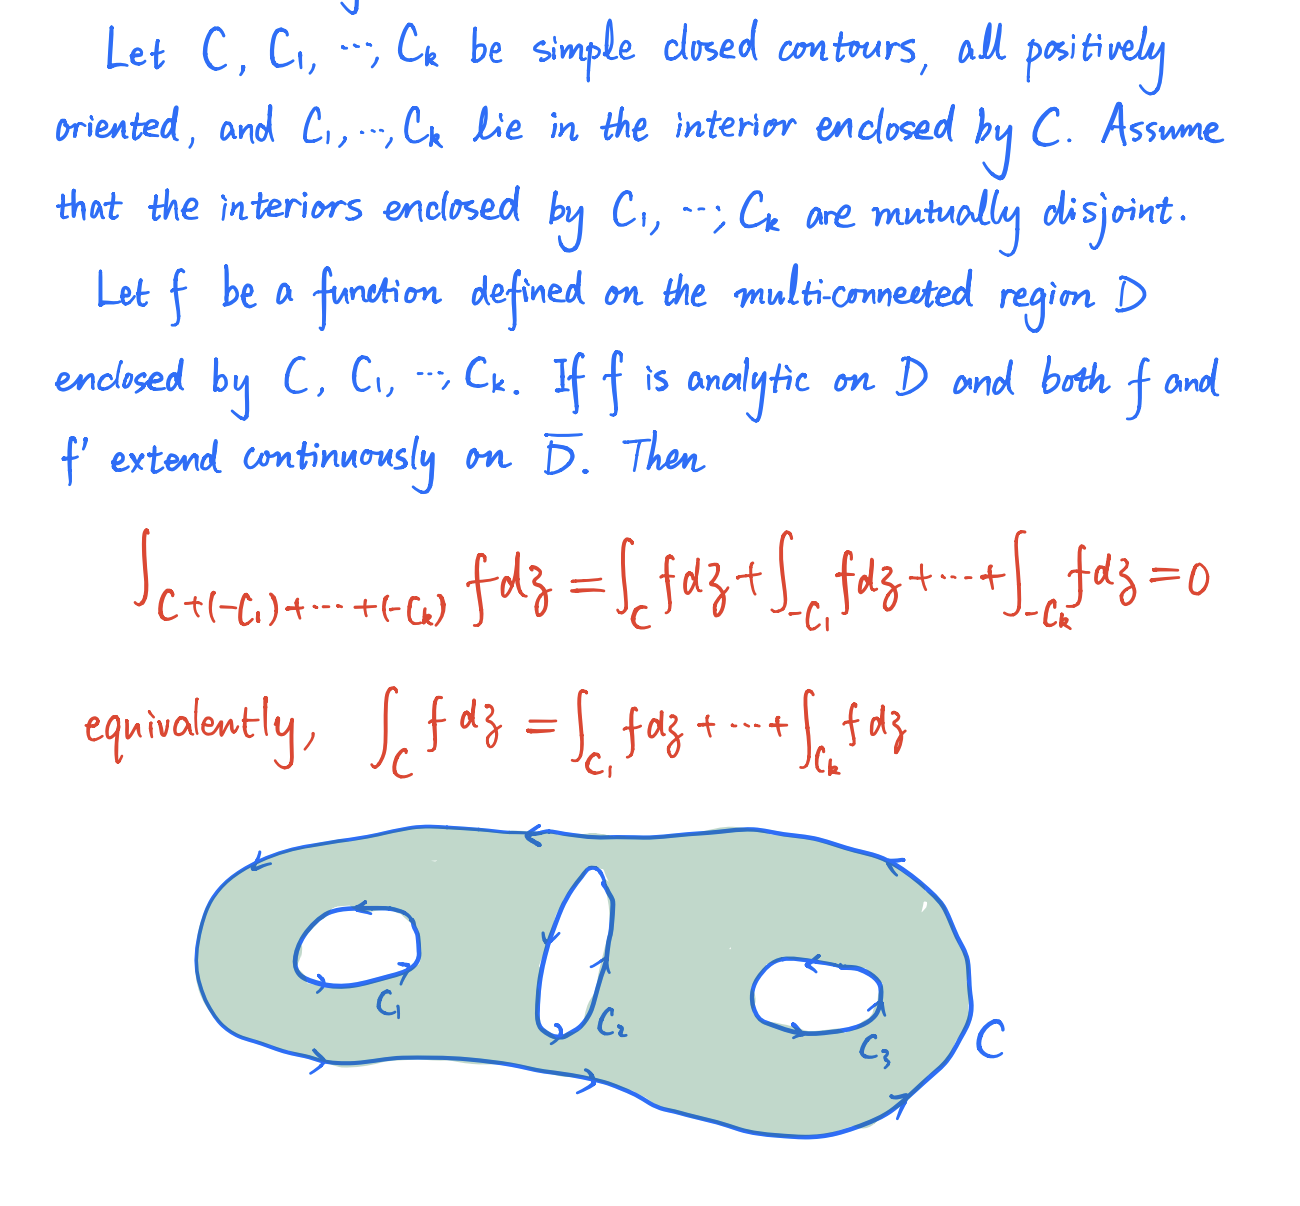 Let C, C₁, ⋯, Cₖ be simple closed contours, all positively
oriented, and C₁, ⋯, Cₖ lie in the interior enclosed by C. Assume
that the interiors enclosed by C₁, ⋯, Cₖ are mutually disjoint.
Let f be a function defined on the multi-connected region D
enclosed by C, C₁, ⋯, Cₖ. If f is analytic on D and both f and
f' extend continuously on D̅. Then
∫_{C+(-C₁)+⋯+(-Cₖ)} f dz = ∫_C f dz + ∫_{-C₁} f dz + ⋯ + ∫_{-Cₖ} f dz = 0
equivently, ∫_C f dz = ∫_{C₁} f dz + ⋯ + ∫_{Cₖ} f dz
C₁
C₂
C₃
C